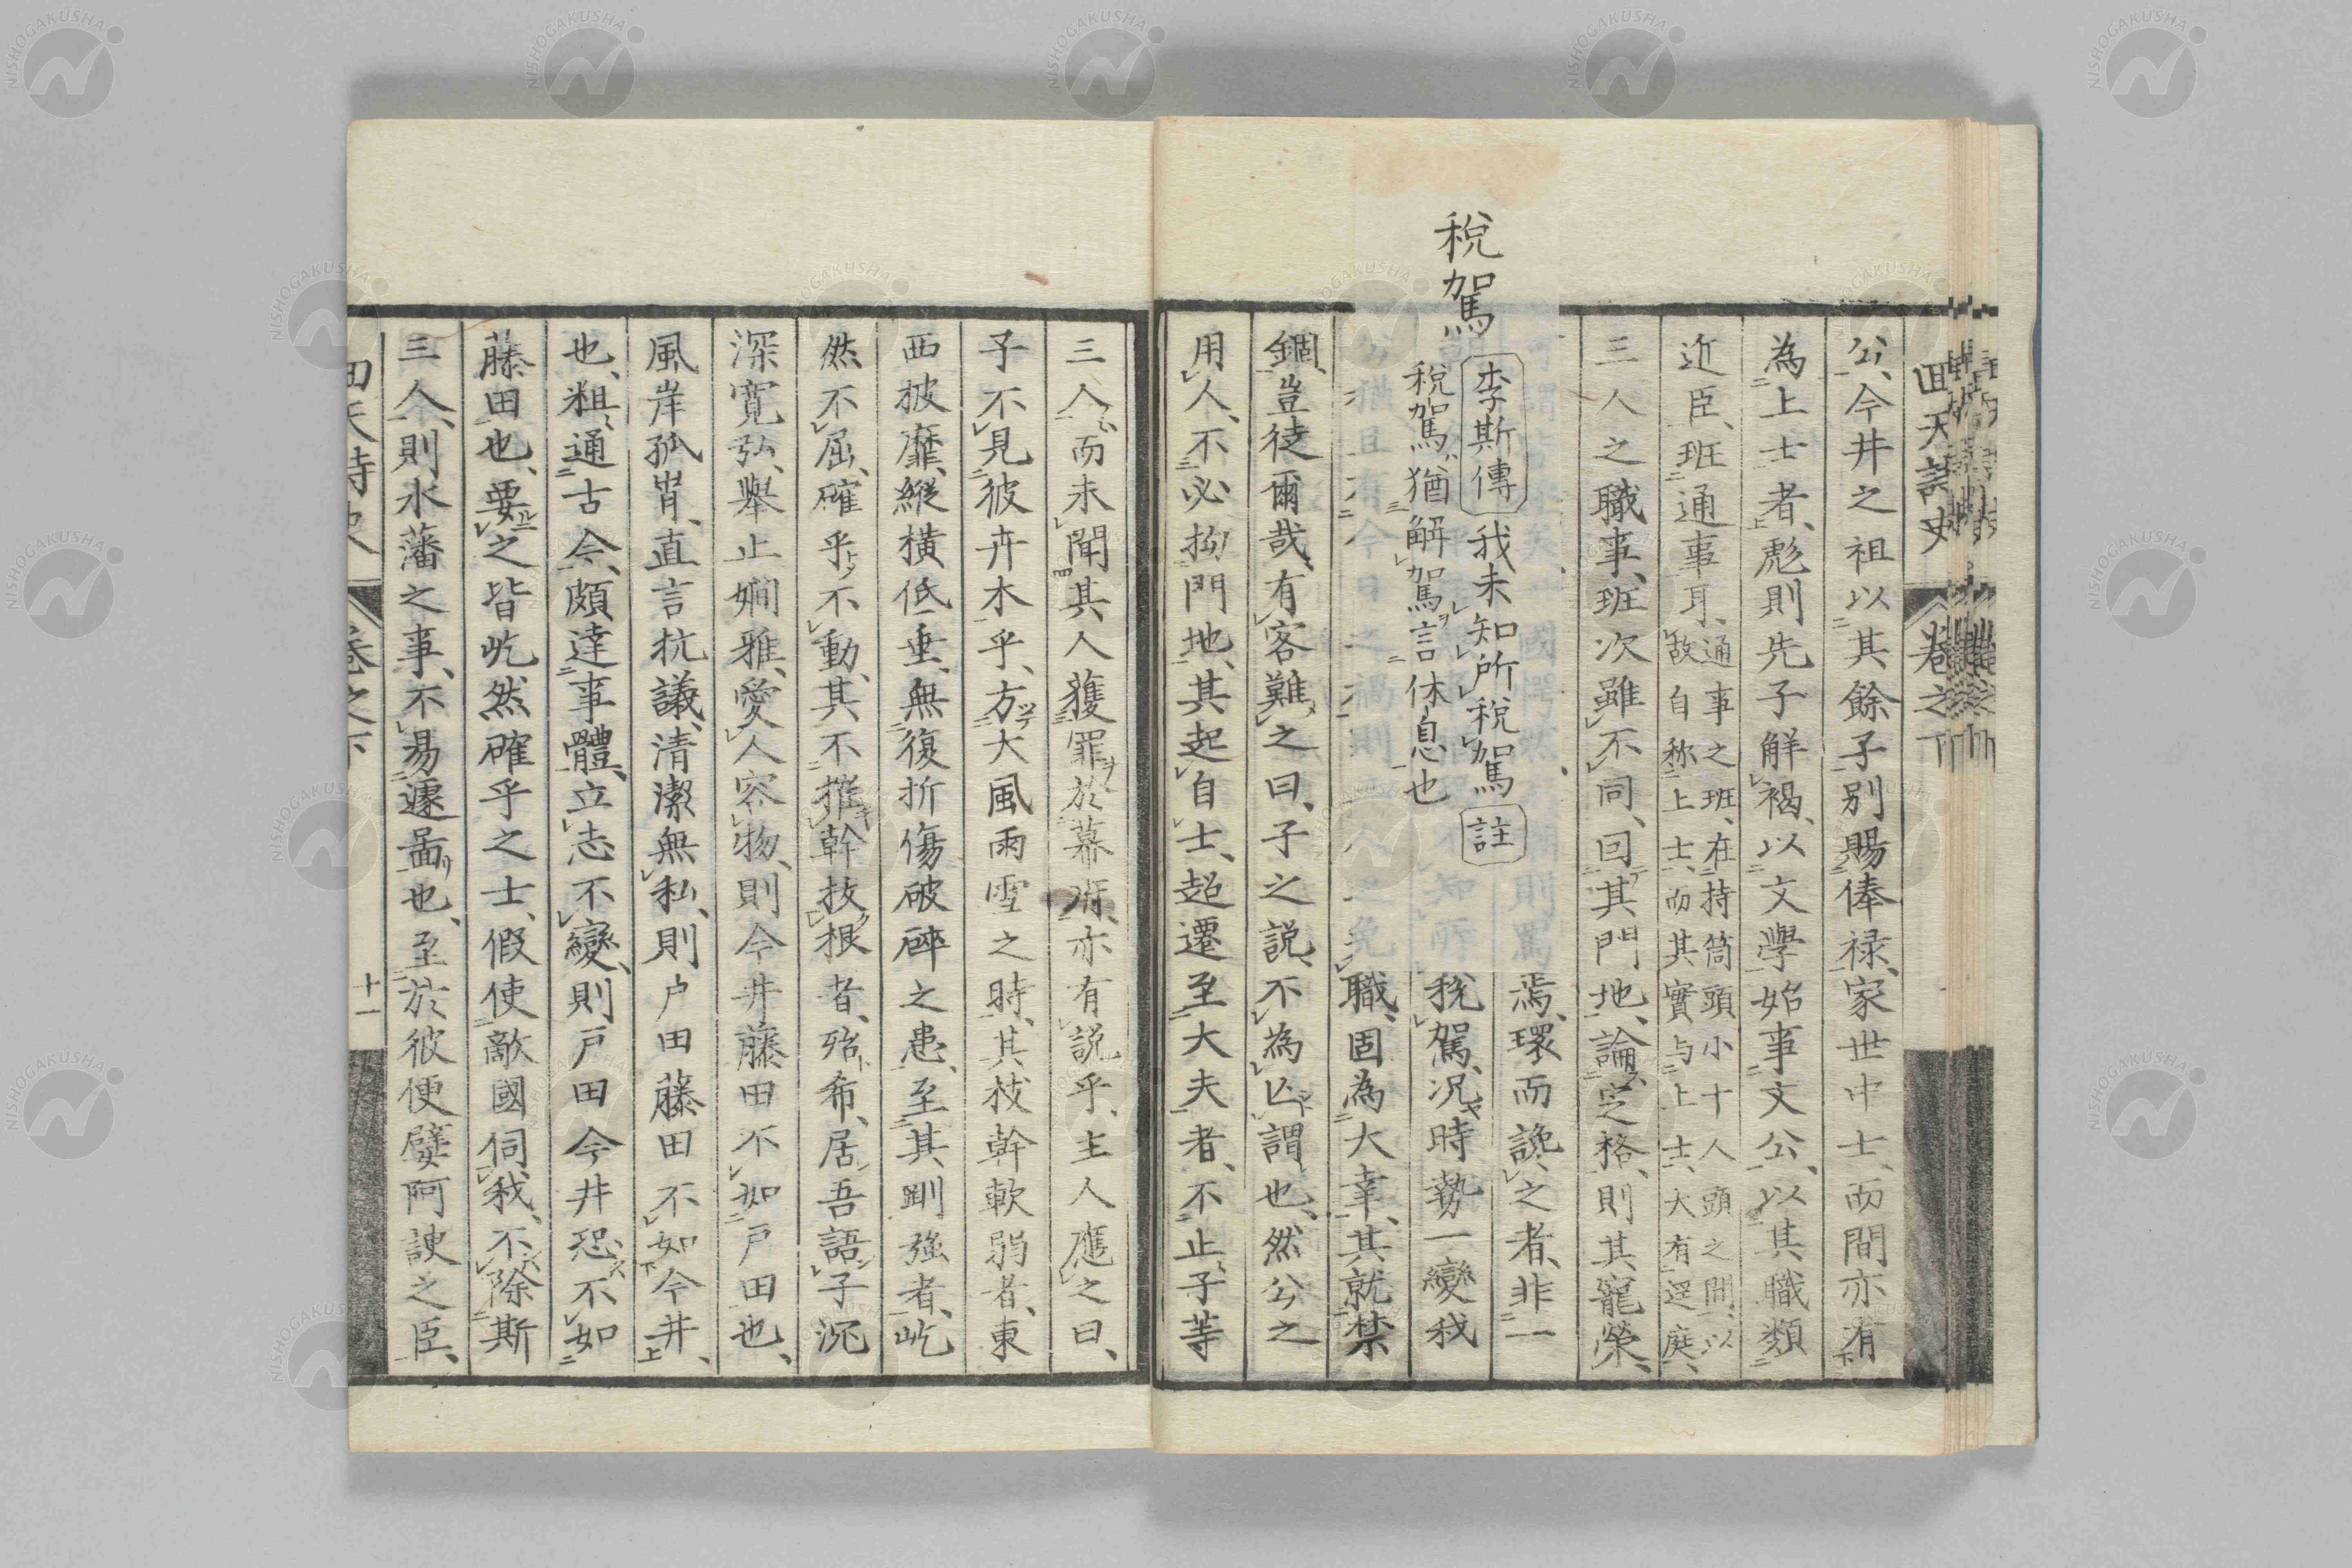 回天詩史 卷之下
公、今井之祖以其餘子別賜俸禄、家世中士、而間亦有
為上士者、彪則先子解褐、以文學始事文公、以其職類
近臣、班通事耳、通事之班、在持筒頭小十人頭之間、以
故自称上士、而其實与上士、大有逕庭、
三人之職事、班次雖不同、回其門地、論定格、則其寵榮、
焉、環而詭之者、非一
税駕、况時勢一變我
職、固為大幸、其就禁
錮、豈徒爾哉、有客難之曰、子之説、不為匕謂也、然公之
用人、不必拘門地、其起自士、超遷至大夫者、不止子等
税駕
李斯傳 我未知所税駕 註
税駕猶解駕言休息也
三人、而未聞其人獲罪於幕府、亦有説乎、主人應之曰、
子不見彼卉木乎、方大風雨雪之時、其枝幹軟弱者、東
西披靡、縱横低垂、無復折傷破碎之患、至其剛強者、屹
然不屈、確乎不動、其不摧幹拔根者、殆希、居吾語子、沉
深寛弘、舉止嫻雅、愛人容物、則今井藤田不如戸田也、
風岸孤峭、直言抗議、清潔無私、則戸田藤田不如今井、
也、粗通古今、頗達事體、立志不變、則戸田今井恐不如
藤田也、要之皆屹然確乎之士、假使敵國伺我、不除斯
三人、則水藩之事、不易遽啚也、至於彼便嬖阿諛之臣、
回天詩史 卷之下 十一